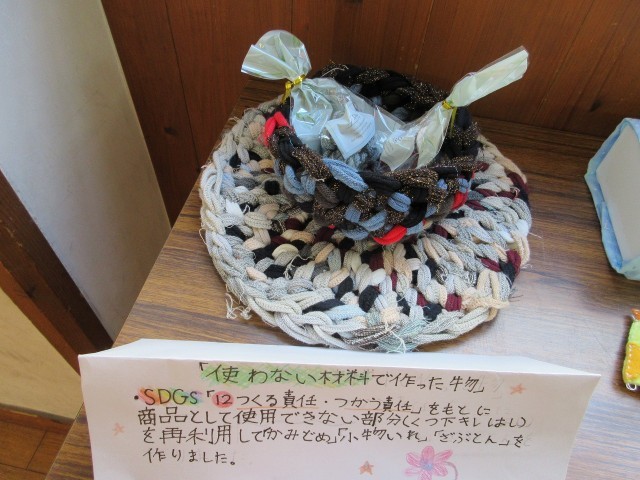 「使わない材料で作った物」
・SDGs「12つくる責任・つかう責任」をもとに
商品として使用できない部分(くつ下キレはし)
を再利用して「かみどめ」「小物いれ」「ざぶとん」を
作りました。